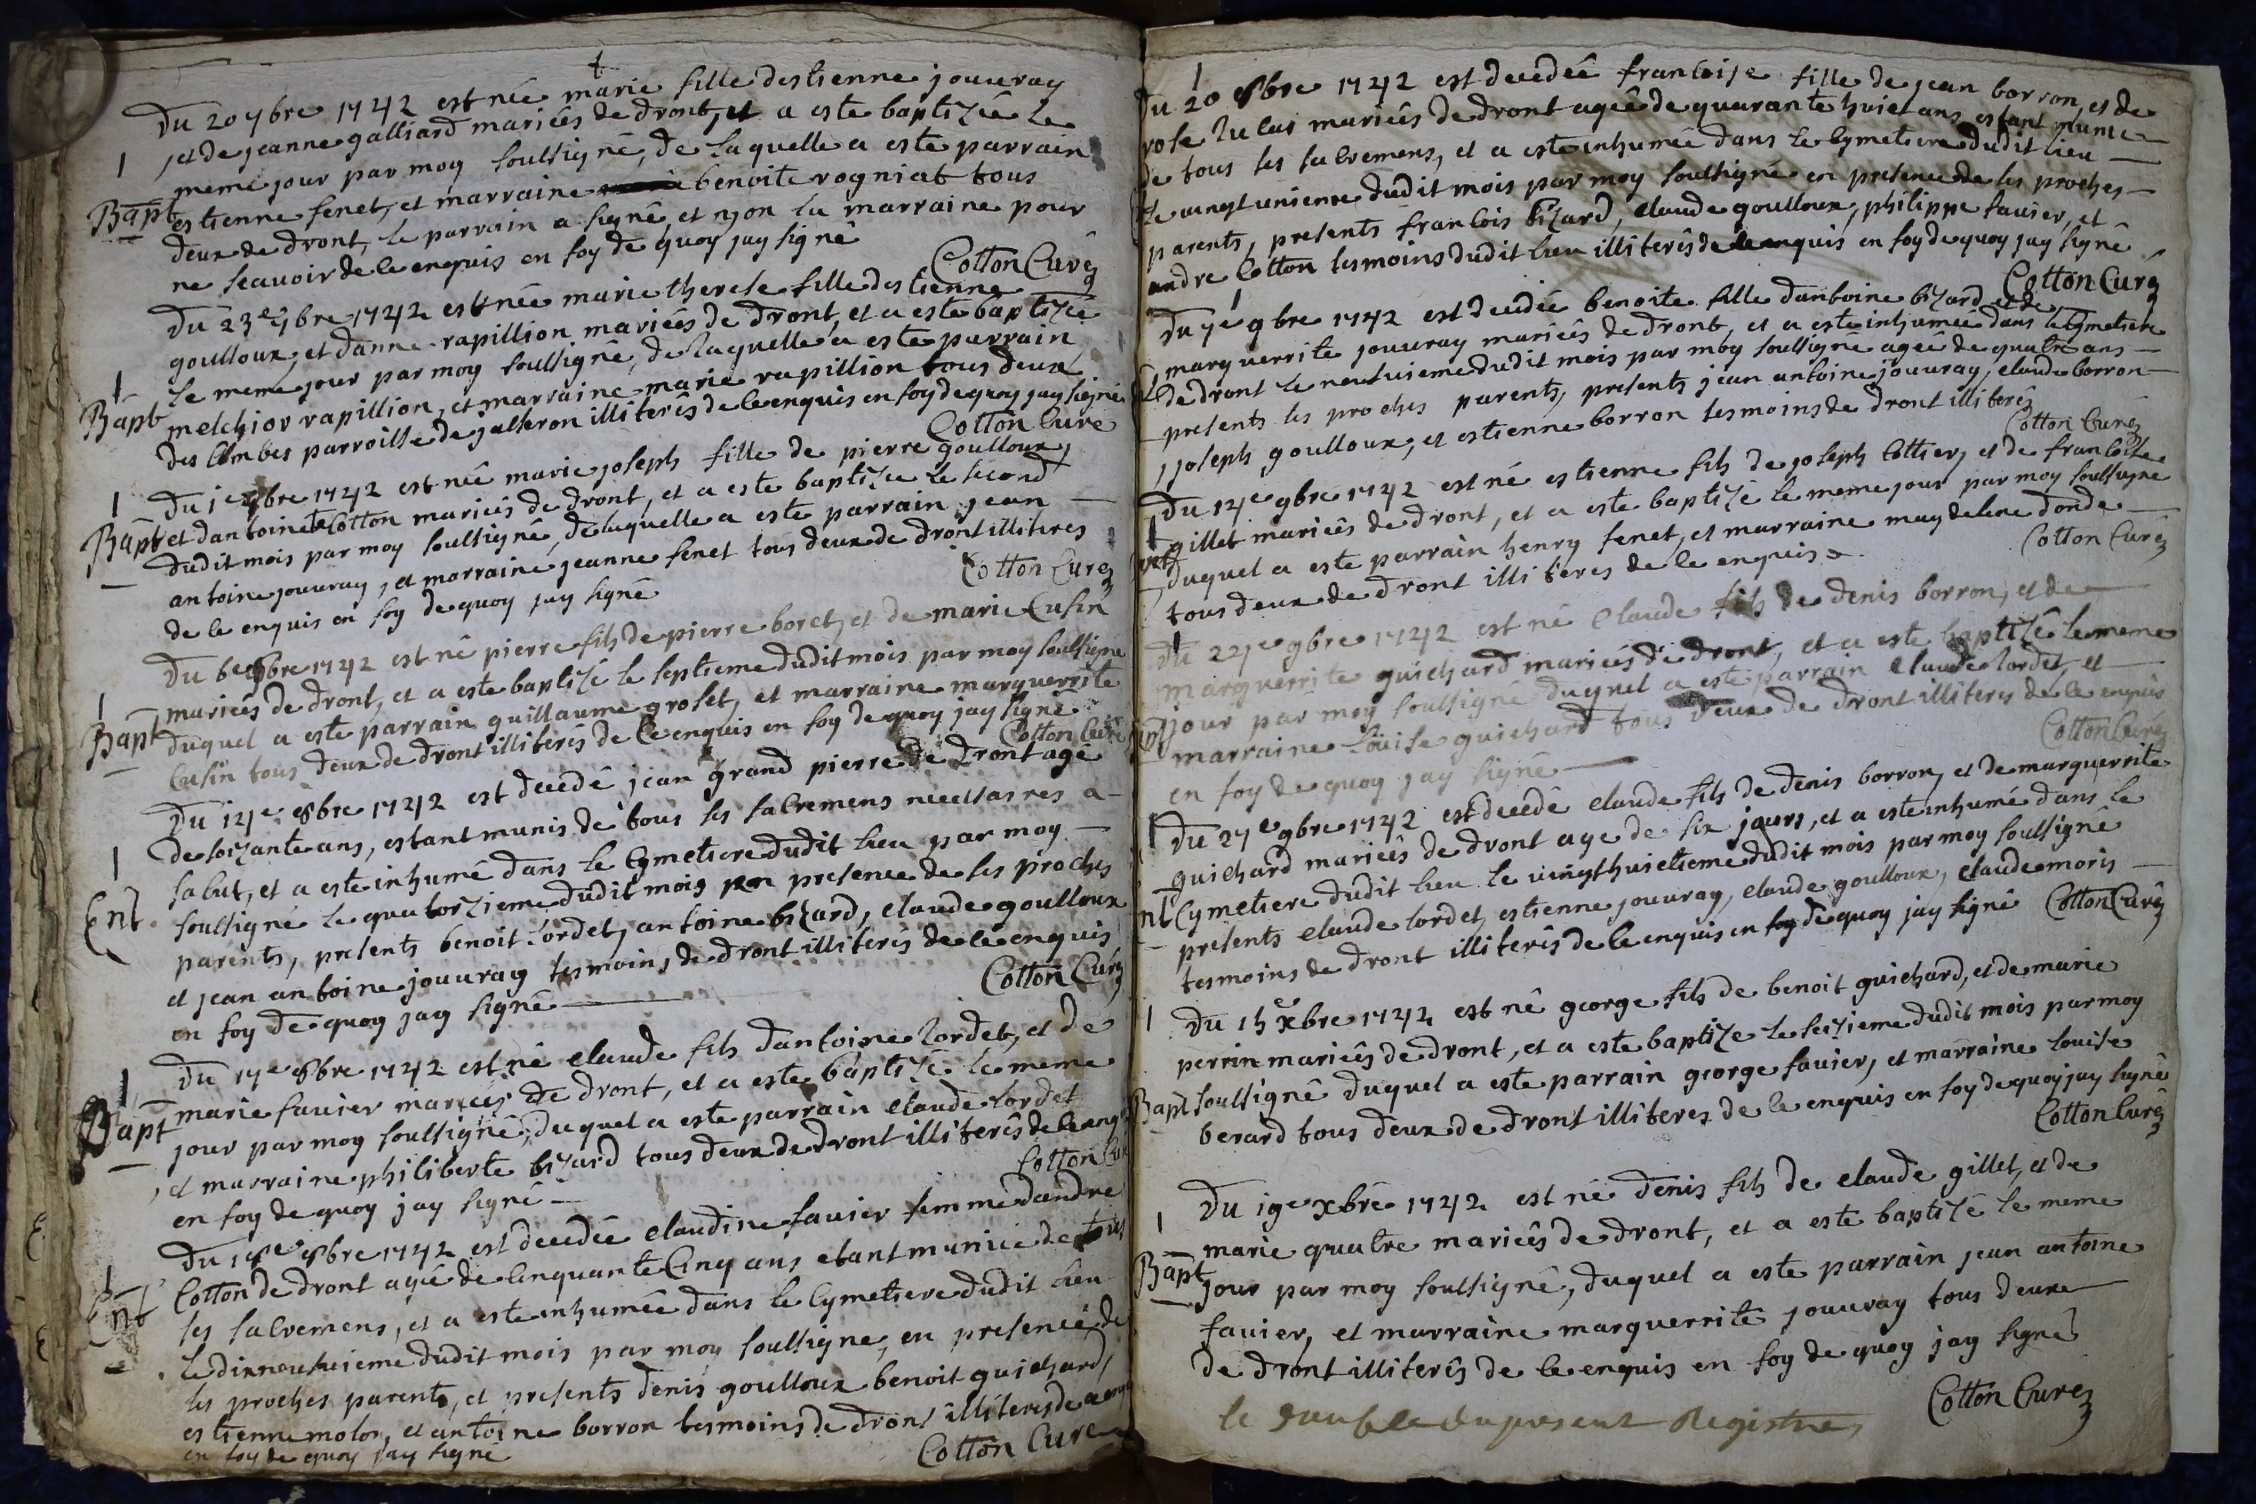 †
Du 20 7bre 1742 est née marie fille destienne jouvray
, et de jeanne galliard mariés de dront, et a este baptizée le
meme jour par moy soussigné, de laquelle a este parrain
Bapt estienne fenet, et marraine benoite rogniat tous
deux de dront, le parrain a signé et non la marraine pour
ne scavoir de ce enquis en foy de quoy jay signé
Cotton Curé
Du 23e 7bre 1742 est née marie therese fille destienne
goulloux, et danne rapillion mariés de dront, et a este baptizée
le meme jour par moy soussigné, de laquelle a este parrain
Bapt melchior rapillion, et marraine marie rapillion tous deux
des Combes parroisse de jasseron illiterés de ce enquis en foy de quoy jay signé
Cotton Curé
Du 1e 8bre 1742 est née marie joseph fille de pierre goulloux,
Bapt et dantoinete Cotton mariés de dront, et a este baptizée le second
dudit mois par moy soussigné, de laquelle a este parrain jean
antoine jouvray, et marraine jeanne fenet tous deux de dront illiteres
de ce enquis en foy de quoy jay signé
Cotton Curé
Du 6e 8bre 1742 est né pierre fils de pierre boret, et de marie Cusin
mariés de dront, et a este baptizé le septieme dudit mois par moy soussigné
Bapt duquel a este parrain guillaume groset, et marraine marguerrite
Cusin tous deux de dront illiterés de ce enquis en foy de quoy jay signé
Cotton Curé
Du 12e 8bre 1742 est decedé jean grand pierre de dront agé
de soizante ans, estant munis de tous les sacremens necessaires a
salut, et a este inhumé dans le Cymetiere dudit lieu par moy
Ent. soussigné le quatorzieme dudit mois en presence de ses proches
parents, presents benoit lordet, antoine bizard, claude goulloux
et jean antoine jouvray tesmoins de dront illiterés de ce enquis
en foy de quoy jay signé
Cotton Curé
Du 17e 8bre 1742 est né claude fils dantoine lordet, et de
marie favier mariés de dront, et a este baptizé le meme
Bapt jour par moy soussigné, duquel a este parrain claude lordet
, et marraine philiberte bizard tous deux de dront illiterés de ce enq
en foy de quoy jay signé
Cotton Cur
Du 18e 8bre 1742 est decedée claudine favier femme dandre
Cotton de dront agée de cinquante Cinq ans etant munie de tous
Ent les sacremens, et a este inhumée dans le Cymetiere dudit lieu
le dixneufvieme dudit mois par moy soussigné, en presence de
ses proches parents, et presents denis goulloux benoit guichard,
estienne molon, et antoine borron tesmoins de dront illiteres de ce enq
en foy de quoy jay signé
Cotton Curé
Du 20 8bre 1742 est decedée francoise fille de jean borron, et de
rose lucas mariés de dront agée de quarante huict ans estant munie
de tous les sacremens, et a este inhumée dans le Cymetiere dudit lieu
le vingt unieme dudit mois par moy soussigné en presence de ses proches
parents, presents francois bizard, claude goulloux, philippe favier, et
andre Cotton tesmoins dudit lieu illiterés de ce enquis en foy de quoy jay signé
Cotton Curé
Du 7e 9bre 1742 est decedée benoite fille dantoine bizard, et de
marguerrite jouvray mariés de dront, et a este inhumée dans le Cymetiere
de dront le neufvieme dudit mois par moy soussigné agée de quatre ans
presents ses proches parents, presents jean antoine jouvray, claude borron
, joseph goulloux, et estienne borron tesmoins de dront illiterés
Cotton Curé
Du 12e 9bre 1742 est né estienne fils de joseph Cottier, et de francoise
gillet mariés de dront, et a este baptizé le meme jour par moy soussigné
duquel a este parrain henry fenet, et marraine magdelene donde
tous deux de dront illiteres de ce enquis
Cotton Curé
Du 22e 9bre 1742 est né Claude fils de denis borron, et de
marguerrite guichard mariés de dront, et a este baptizé le meme
jour par moy soussigné duquel a este parrain claude lordet, et
marraine louise guichard tous deux de dront illiteres de ce enquis
en foy de quoy jay signé
Cotton Curé
Du 27e 9bre 1742 est decedé claude fils de denis borron, et de marguerrite
guichard mariés de dront age de six jours, et a este inhumé dans le
Ent Cymetiere dudit lieu le vingthuictieme dudit mois par moy soussigné
presents claude lordet, estienne jouvray, claude goulloux, claude moris
tesmoins de dront illiterés de ce enquis en foy de quoy jay signé Cotton Curé
Du 15e Xbre 1742 est né george fils de benoit guichard, et de marie
perrin mariés de dront, et a este baptize le seizieme dudit mois par moy
Bapt soussigné duquel a este parrain george favier, et marraine louise
berard tous deux de dront illiteres de ce enquis en foy de quoy jay signé
Cotton Curé
Du 19e Xbre 1742 est né denis fils de claude gillet, et de
marie quatre mariés de dront, et a este baptizé le meme
Bapt jour par moy soussigné, duquel a este parrain jean antoine
favier, et marraine marguerrite jouvray tous deux
de dront illiterés de ce enquis en foy de quoy jay signé
Cotton Curé
le double du present Registre